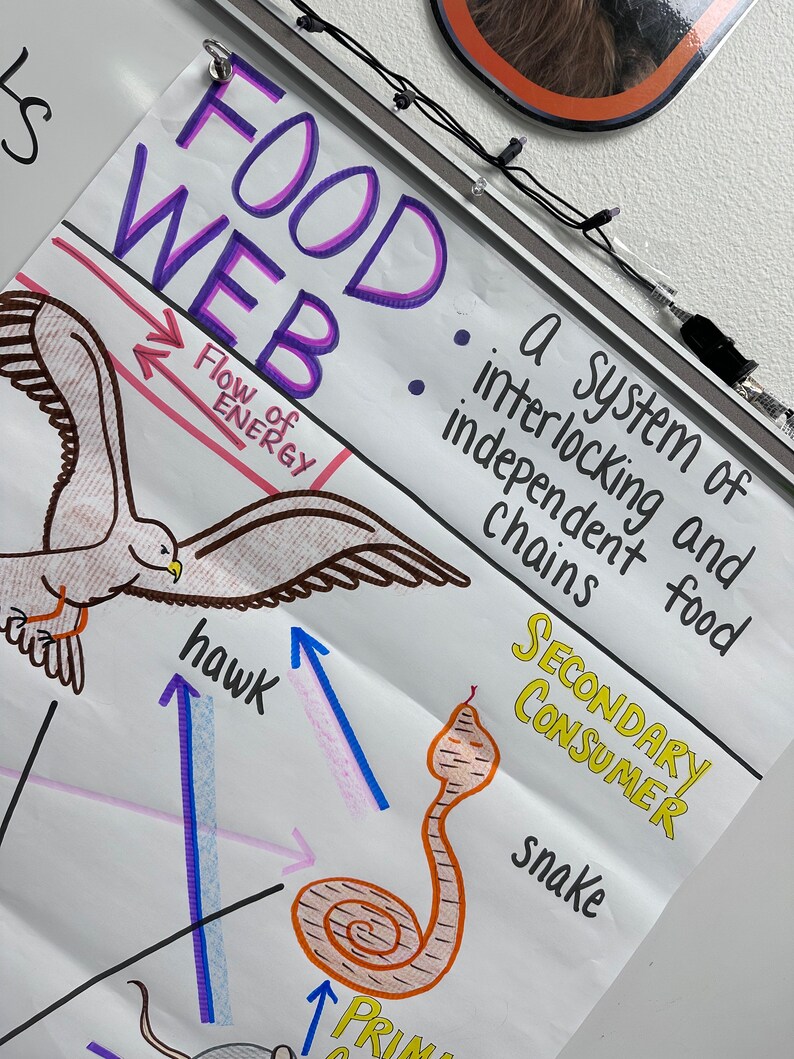 FOOD
WEB
: a system of
interlocking and
independent food
chains
Flow of
ENERGY
hawk
SECONDARY
CONSUMER
snake